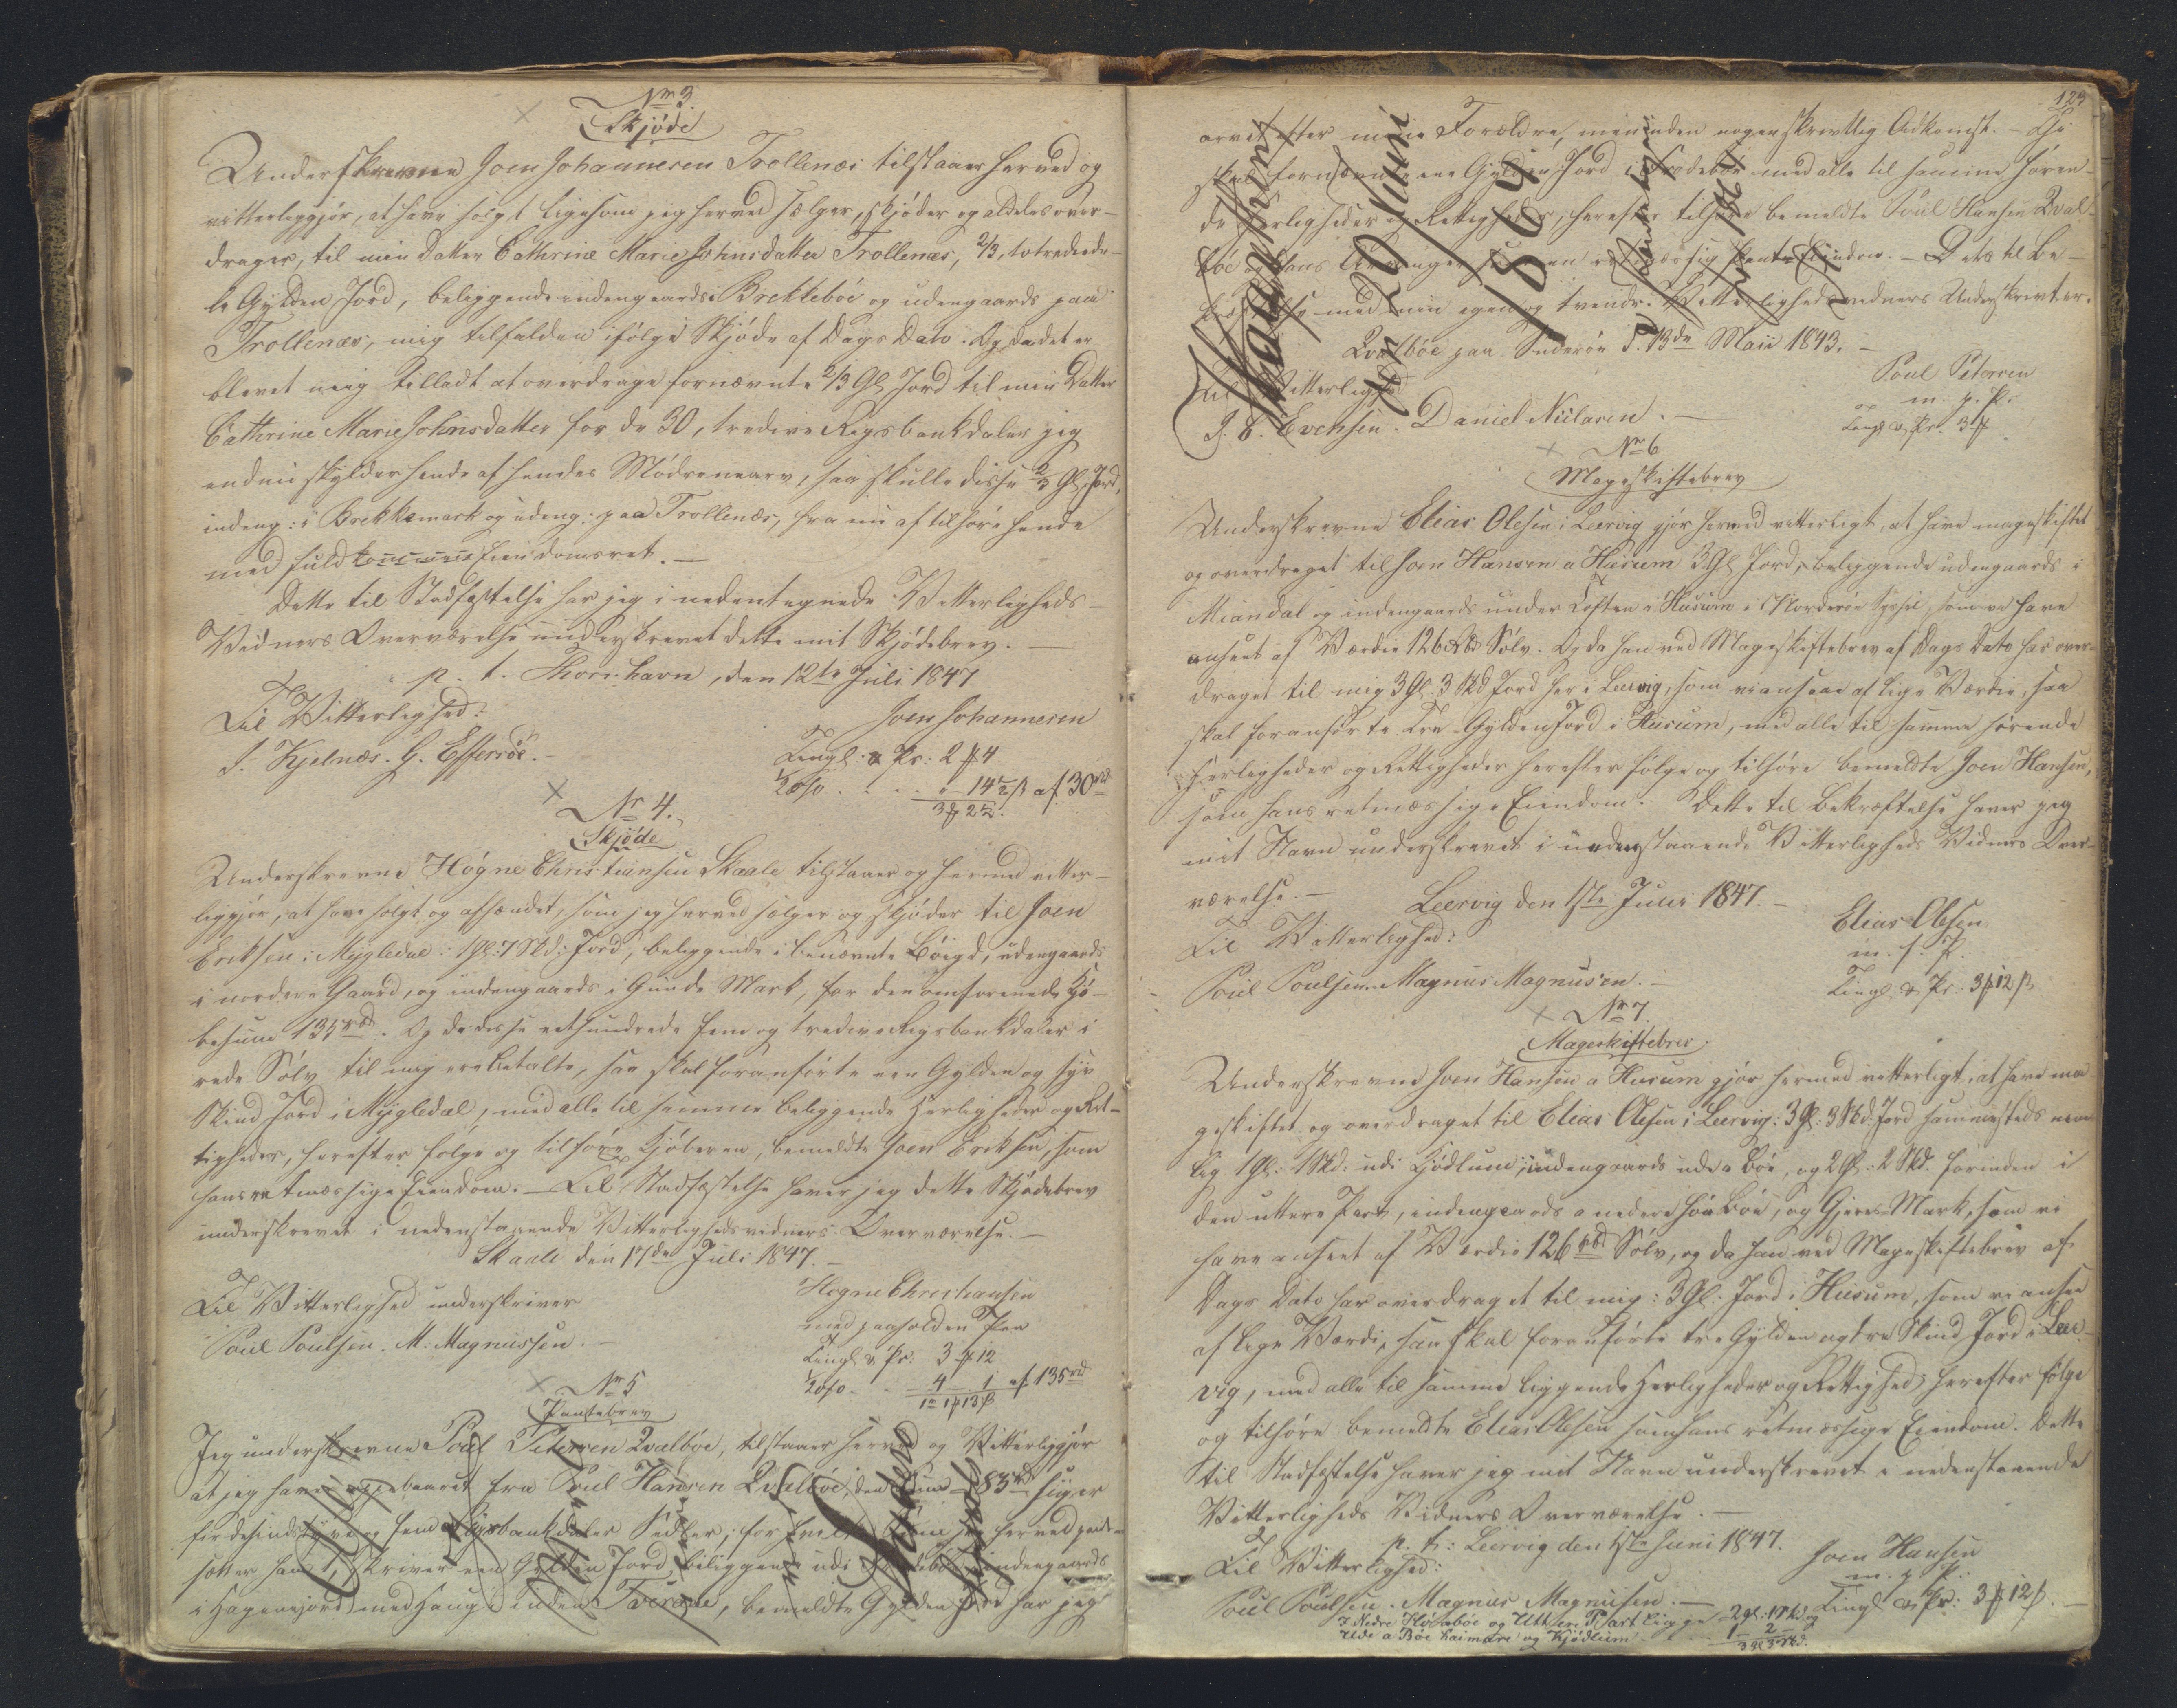 Nr 3.
Skjöde
Underskrevne Joen Johannesen Trollenæs tilstaaer herved og
vitterliggjør, at have solgt ligesom jeg herved sælger, skjøder og aldeles over-
drager, til min Datter Cathrine Marie Johnsdatter Trollenæs, 2/3, totrediede-
le Gylden Jord, beliggende indengaards i Brekkeböe og udengaards paa
Trollenæs, mig tilfalden ifølge Skjøde af Dags Dato. Og da det er
blevet mig tilladt at overdrage fornævnte 2/3 Gl Jord til min Datter
Cathrine Marie Johnsdatter for de 30, tredive Rigsbankdaler jeg
endnu skylder hende af hendes Mödrenearv, saa skulle disse 2/3 Gl. Jord,
indeng: i Brekkemark og udeng: paa Trollenæs, fra nu af tilhøre hende
med fuld Eiendomsret. —
Dette til Stadfæstelse har jeg i nedentegnede Vitterligheds-
Vidners Overværelse underskrevet dette mit Skjödebrev. —
p. t. Thorshavn, den 12te Juli 1847
Til Vitterlighed:
Joen Johannesen
J. Kjelnæs. G. Effersöe. —
Tingl: & Pr: 2 # 4
1/2 o/o . . . . - 14 1/2 ß af 30 rd
3 # 2 1/2.
Nr 4.
Skjöde
Underskrevne Högne Christiansen Skaale tilstaaer og herved vitter-
liggjør, at have solgt og afhændet, som jeg herved sælger og skjøder til Joen
Eriksen i Mygledal: 1 Gl: 7 Skd: Jord, beliggende i benævnte Böigd, udengaards
i nordre Gaard, og indengaards i Gunde Mark, for den omforenede Kjö-
besum 135 rd. Og da disse eethundrede fem og tredive Rigsbankdaler i
rede Sölv til mig ere betalte, saa skal foranførte een Gylden og syv
Skind Jord i Mygledal, med alle til samme beliggende Herligheder og Ret-
tigheder, herefter følge og tilhøre Kjöberen, bemeldte Joen Eriksen, som
hans retmæssige Eiendom. — Til Stadfæstelse haver jeg dette Skjödebrev
underskrevet i nedenstaaende Vitterlighedsvidners Overværelse. —
Skaale den 17de Juli 1847. —
Til Vitterlighed underskriver
Högne Christiansen
med paaholden Pen
Poul Poulsen. M: Magnussen. —
Tingl & Pr: 3 # 12
1/2 o/o . . 4 1 af 135 rd
1 rd 1 # 13 ß
Nr 5
Pantebrev
Jeg underskrevne Poul Petersen Qvalböe, tilstaaer herved og Vitterliggjør
at jeg haver oppebaaret fra Poul Hansen Qvalböe, den Sum 85 rd siger
firdesindstyve og fem Rigsbankdaler Sedler, for hvilken Sum jeg herved pant-
sætter ham, skriver een Gylden Jord, beliggende udi indengaards
i Hagenejord med Haug i inden Tværaae, bemeldte Gylden Jord har jeg
123
arvet efter mine Forældre, men inden nogen skrivtlig Adkomst. — Thi
skal fornævnte een Gylden Jord i med alle til samme hören-
de Herligheder og Rettigheder, herefter tilhøre bemeldte Poul Hansen Qval-
böe og hans Arvinger som en retmæssig Pante Eiendom. — Dets til Be-
kræftelse med min egen og tvende Vitterlighedsvidners Underskrivter.
Qvalböe paa Suderöe d. 13de Maii 1843. —
Til Vitterlighed
Poul Petersen
m. p. P.
J. E. Evensen. Daniel Nielasen. —
Tingl & Pr. 3 #
20 Juni
1864
Nr 6
Mageskiftebrev
Underskrevne Elias Olesen i Leervig gjør herved vitterligt, at have mageskiftet
og overdraget til Joen Hansen a Husum 3 Gl Jord, beliggende udengaards i
Miandal og indengaards under Toften i Husum i Norderöe Syssel, som vi have
anseet af Værdie 126 Rbd Sölv. Og da han ved Mageskiftebrev af Dags Dato har over-
draget til mig 3 Gl. 3 Skd Jord her i Leervig, som vi ansee af lige Værdie, saa
skal foranførte Tre Gylden Jord i Husum, med alle til samme hørende
Herligheder og Rettigheder herefter følge og tilhøre bemeldte Joen Hansen,
som hans retmæssige Eiendom. Dette til Bekræftelse haver jeg
mit Navn underskrevet i understaaende Vitterligheds Vidners Over-
værelse. —
Leervig den 1ste Juni 1847. —
Til Vitterlighed:
Elias Olesen
m. p. P.
Poul Poulsen. Magnus Magnusen. —
Tingl. & Pr: 3 # 12 ß
Nr 7.
Mageskiftebrev.
Underskrevne Joen Hansen a Husum gjør hermed vitterligt, at have ma
geskiftet og overdraget til Elias Olesen i Leervig: 3 Gl: 3 Skd: Jord sammesteds nem
lig 1 Gl: 1 Skd: udi Kjödlum, indengaards ude a Böe, og 2 Gl: 2 Skd. forinden i
den uttere Part, indengaards a nedere Höa Böe, og Gjeres-Mark, som vi
have anseet af Værdie 126 rbd Sölv, og da han ved Mageskiftebrev af
Dags Dato har overdraget til mig: 3 Gl: Jord i Husum, som vi ansee
af lige Værdi, saa skal foranførte tre Gylden og tre Skind Jord i Leer-
vig, med alle til samme liggende Herligheder og Rettigheder herefter følge
og tilhøre bemeldte Elias Olesen som hans retmæssige Eiendom. Dette
til Stadfæstelse haver jeg mit Navn underskrevet i nedenstaaende
Vitterligheds Vidners Overværelse. —
p. t: Leervig den 1ste Juni 1847.
Til Vitterlighed:
Joen Hansen
m. p. P.:
Poul Poulsen. Magnus Magnusen. —
Tingl & Pr: 3 # 12 ß. —
I Nedre Höaböe og Utteri Part ligge 2 gl: 1 Skd og
Ude a Böe haimare og Kjödlum . . 1 — 2 —
3 gl 3 Skd.